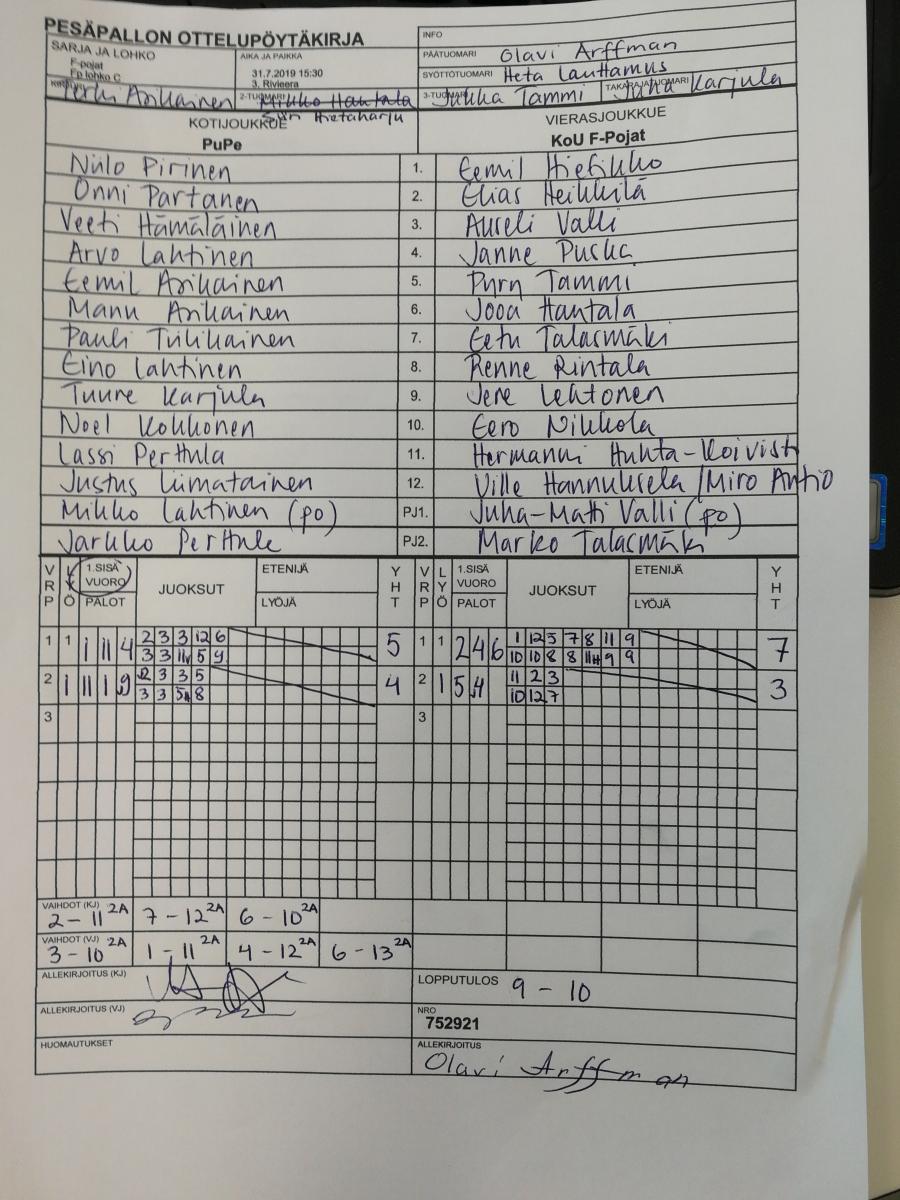 PESÄPALLON OTTELUPÖYTÄKIRJA
INFO
SARJA JA LOHKO
F-pojat
Fp lohko C
AIKA JA PAIKKA
31.7.2019 15:30
3. Rivieera
PÄÄTUOMARI Olavi Arffman
SYÖTTÖTUOMARI Heta Lauttamus
KIRJURI Terhi Arikainen
2-TUOMARI Mikko Hautala
Hietaharju
3-TUOMARI Jukka Tammi
TAKARAJATUOMARI Juha Karjula
KOTIJOUKKUE
PuPe
VIERASJOUKKUE
KoU F-Pojat
Niilo Pirinen 1. Eemil Hietikko
Onni Partanen 2. Elias Heikkilä
Veeti Hämäläinen 3. Aureli Valli
Arvo Lahtinen 4. Janne Puska
Eemil Arikainen 5. Pyry Tammi
Manu Arikainen 6. Jooa Hautala
Pauli Tulikainen 7. Eetu Talasmäki
Eino Lahtinen 8. Renne Rintala
Tuure Karjula 9. Jere Lehtonen
Noel Kokkonen 10. Eero Nikkola
Lassi Perttula 11. Hermanni Huhta-Koivisto
Justus Liimatainen 12. Ville Hannuksela / Miro Antio
Mikko Lahtinen (po) PJ1. Juha-Matti Valli (po)
Jarkko Perttula PJ2. Marko Talasmäki
VRP LYÖ 1.SISÄ VUORO PALOT JUOKSUT ETENIJÄ LYÖJÄ YHT VRP LYÖ 1.SISÄ VUORO PALOT JUOKSUT ETENIJÄ LYÖJÄ YHT
1 1 1 11 4 2 3 3 12 6 5 1 1 2 4 6 1 12 5 7 8 11 9 7
3 3 11 5 9 10 10 8 8 11 9 9
2 1 11 1 9 2 3 3 5 4 2 1 5 4 11 2 3 3
3 3 5 8 10 12 7
3 3
VAIHDOT (KJ)
2 - 11 2A 7 - 12 2A 6 - 10 2A
VAIHDOT (VJ)
3 - 10 2A 1 - 11 2A 4 - 12 2A 6 - 13 2A
ALLEKIRJOITUS (KJ)
LOPPUTULOS 9 - 10
ALLEKIRJOITUS (VJ)
NRO
752921
HUOMAUTUKSET
ALLEKIRJOITUS
Olavi Arffman